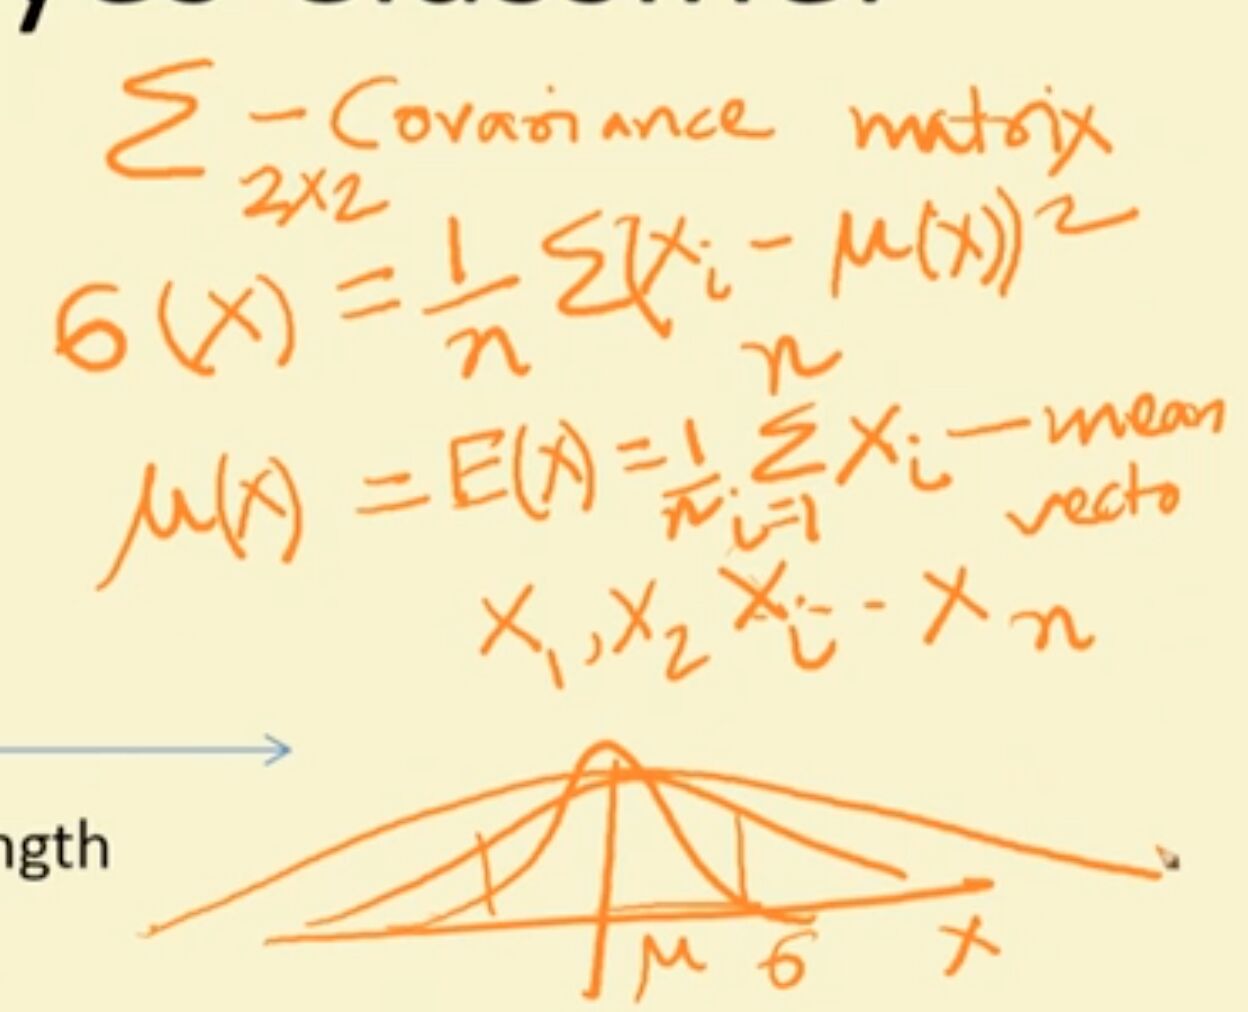 Σ - Covariance matrix
2x2
σ(x) = 1/n Σ(xᵢ - μ(x))²
μ(x) = E(x) = 1/n Σᵢ₌₁ⁿ xᵢ — mean
vecto
x₁, x₂ xᵢ - - xₙ
μ σ x